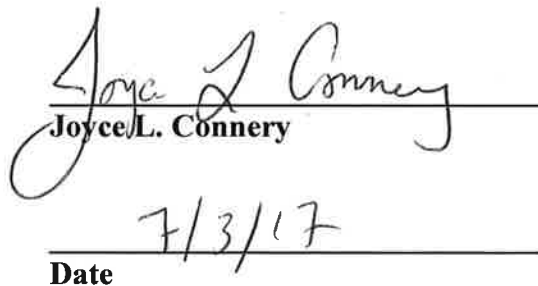 Joyce L Connery
Joyce L. Connery
7/3/17
Date